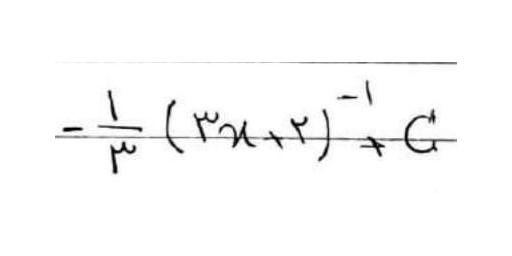 -۱/۳ (۳x+۲)^-۱ + C